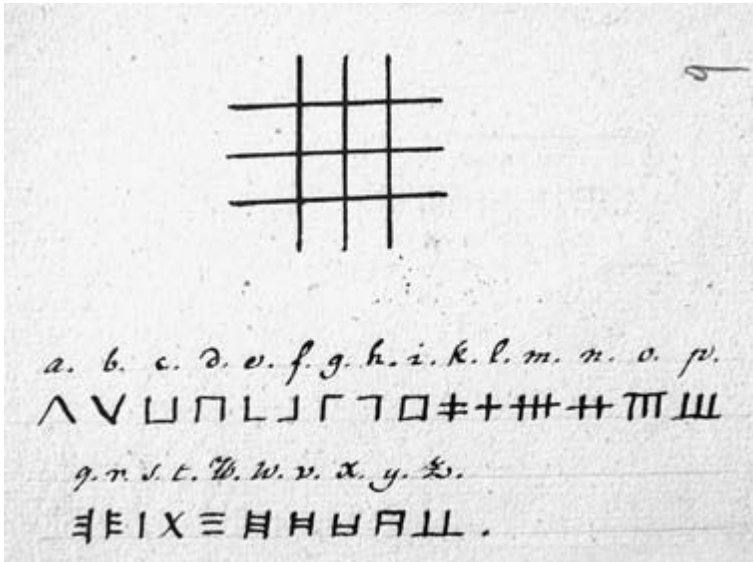 9
a. b. c. d. e. f. g. h. i. k. l. m. n. o. p.
q. r. s. t. U. w. v. x. y. z.